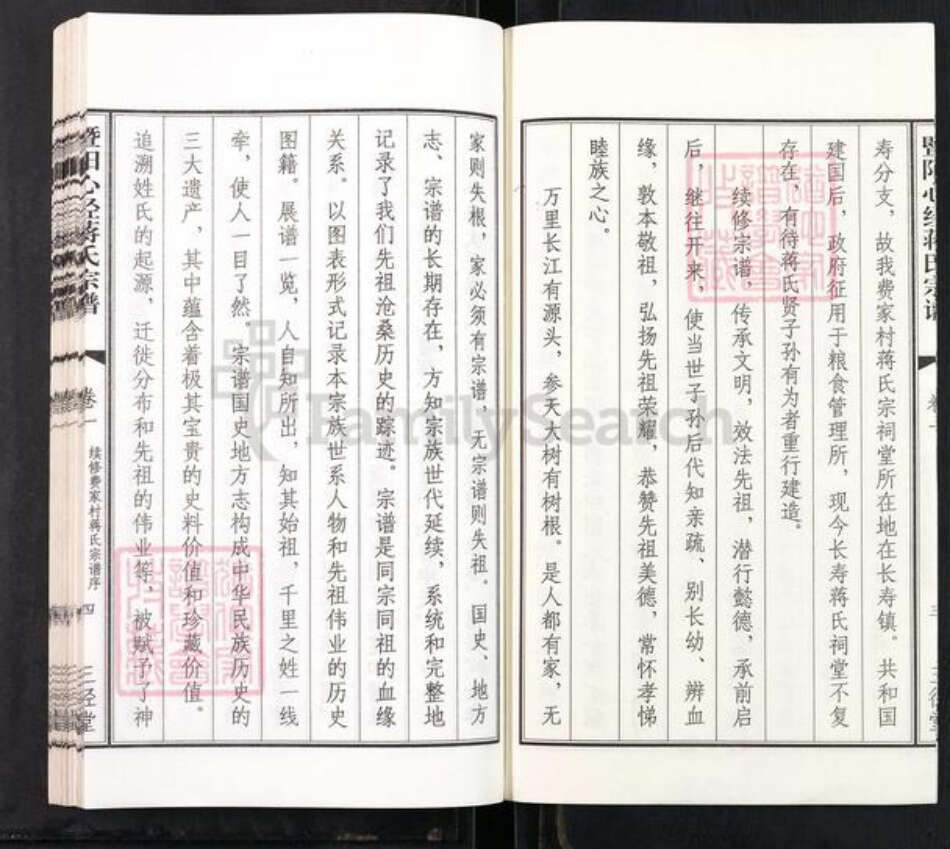 暨阳心经蒋氏宗谱
卷一
寿分支，故我费家村蒋氏宗祠堂所在地在长寿镇。共和国
建国后，政府征用于粮食管理所，现今长寿蒋氏祠堂不复
存在，有待蒋氏贤子孙有为者重行建造。
续修宗谱，传承文明，效法先祖，潜行懿德，承前启
后，继往开来，使当世子孙后代知亲疏、别长幼、辨血
缘，敦本敬祖，弘扬先祖荣耀，恭赞先祖美德，常怀孝悌
睦族之心。
万里长江有源头，参天大树有树根。是人都有家，无
家则失根，家必须有宗谱，无宗谱则失祖。国史、地方
志、宗谱的长期存在，方知宗族世代延续，系统和完整地
记录了我们先祖沧桑历史的踪迹。宗谱是同宗同祖的血缘
关系。以图表形式记录本宗族世系人物和先祖伟业的历史
图籍。展谱一览，人自知所出，知其始祖，千里之姓一线
牵，使人一目了然。宗谱国史地方志构成中华民族历史的
三大遗产，其中蕴含着极其宝贵的史料价值和珍藏价值。
追溯姓氏的起源，迁徙分布和先祖的伟业等，被赋予了神
暨阳心经蒋氏宗谱
卷一
续修费家村蒋氏宗谱序
四
三径堂
FamilySearch